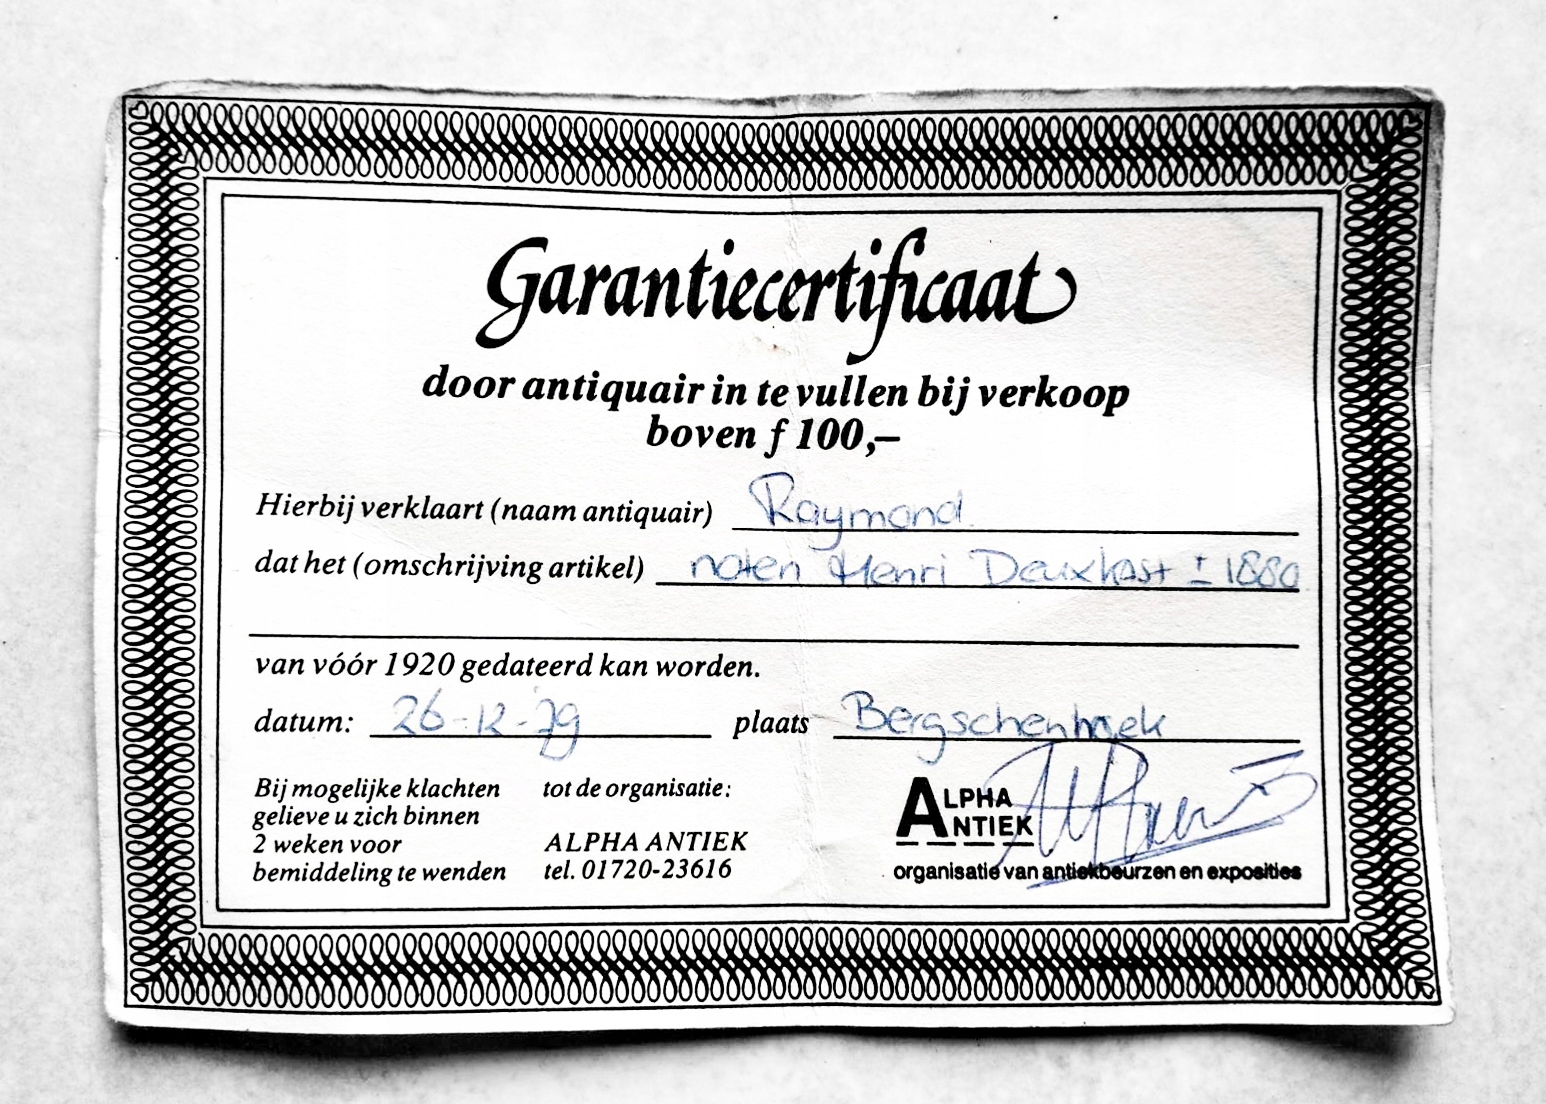 Garantiecertificaat
door antiquair in te vullen bij verkoop
boven ƒ 100,—
Hierbij verklaart (naam antiquair) Raymond
dat het (omschrijving artikel) noten Henri Deuxkast ± 1880
van vóór 1920 gedateerd kan worden.
datum: 26-12-79 plaats Bergschenhoek
Bij mogelijke klachten
gelieve u zich binnen
2 weken voor
bemiddeling te wenden
tot de organisatie:
ALPHA ANTIEK
tel. 01720-23616
ALPHA
ANTIEK
organisatie van antiekbeurzen en exposities